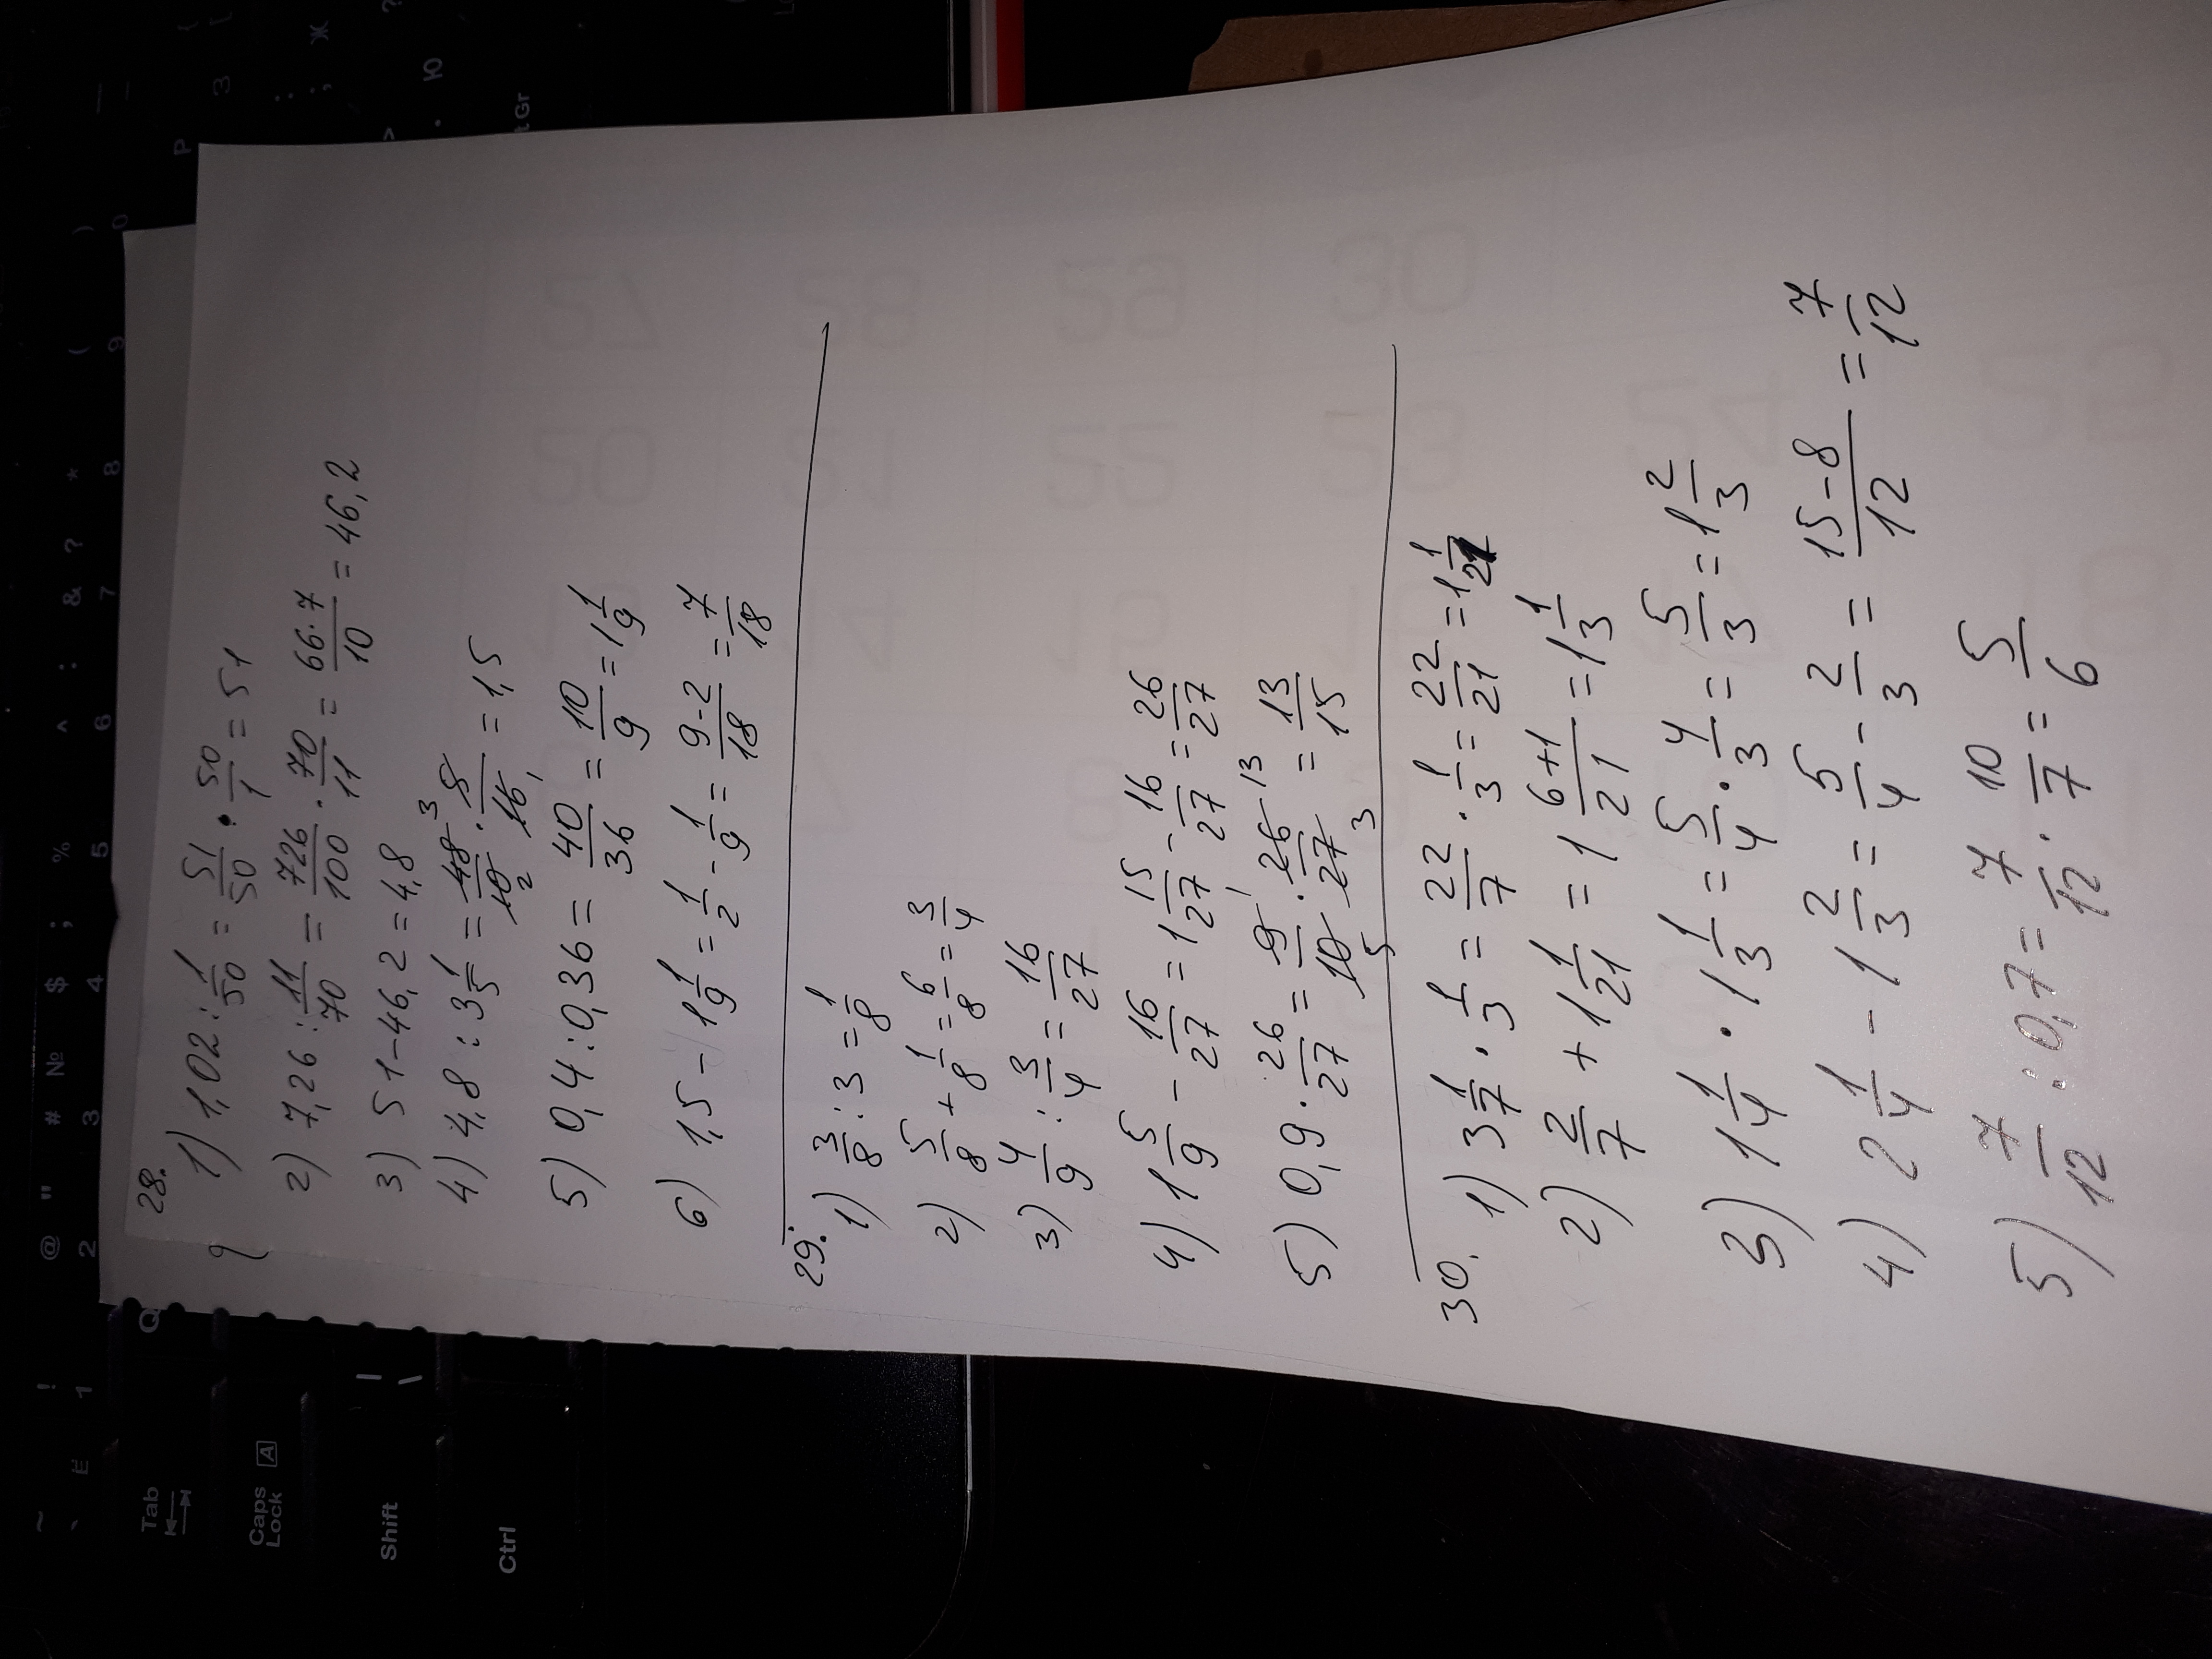 28.
1) 1,02 : 1/50 = 51/50 · 50/1 = 51
2) 7,26 : 11/70 = 726/100 · 70/11 = 66·7/10 = 46,2
3) 51 - 46,2 = 4,8
4) 4,8 : 3 1/5 = 48 3/10 2 · 5/16 1 = 1,5
5) 0,4 : 0,36 = 40/36 = 10/9 = 1 1/9
6) 1,5 - 1 1/9 = 1/2 - 1/9 = 9-2/18 = 7/18
29.
1) 3/8 : 3 = 1/8
2) 5/8 + 1/8 = 6/8 = 3/4
3) 4/9 : 3/4 = 16/27
4) 1 5/9 - 16/27 = 1 15/27 - 16/27 = 26/27
5) 0,9 · 26/27 = 9 1/10 5 · 26 13/27 3 = 13/15
30.
1) 3 1/7 · 1/3 = 22/7 · 1/3 = 22/21 = 1 1/21
2) 2/7 + 1 1/21 = 1 6+1/21 = 1 1/3
3) 1 1/4 · 1 1/3 = 5/4 · 4/3 = 5/3 = 1 2/3
4) 2 1/4 - 1 2/3 = 5/4 - 2/3 = 15-8/12 = 7/12
5) 7/12 : 0,7 = 7/12 · 10/7 = 5/6
Tab
Caps Lock
A
Shift
Ctrl